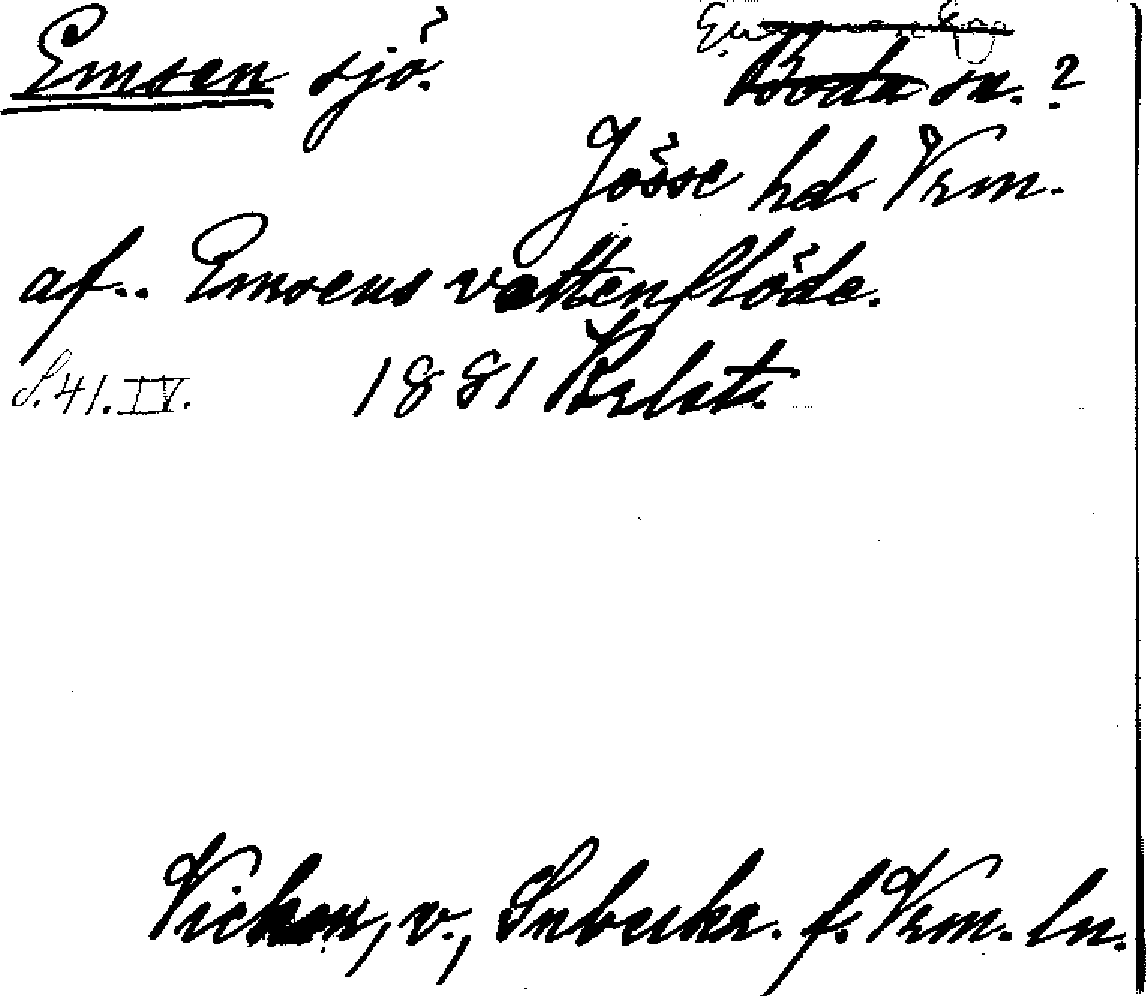 Emsen sjö.
Boda sn. ?
Jösse hd. Vrm.
af.. Emsens vattenflöde.
S.41.IV. 1881 Krlst.
v., Snbeskr. f. Vrm. ln.